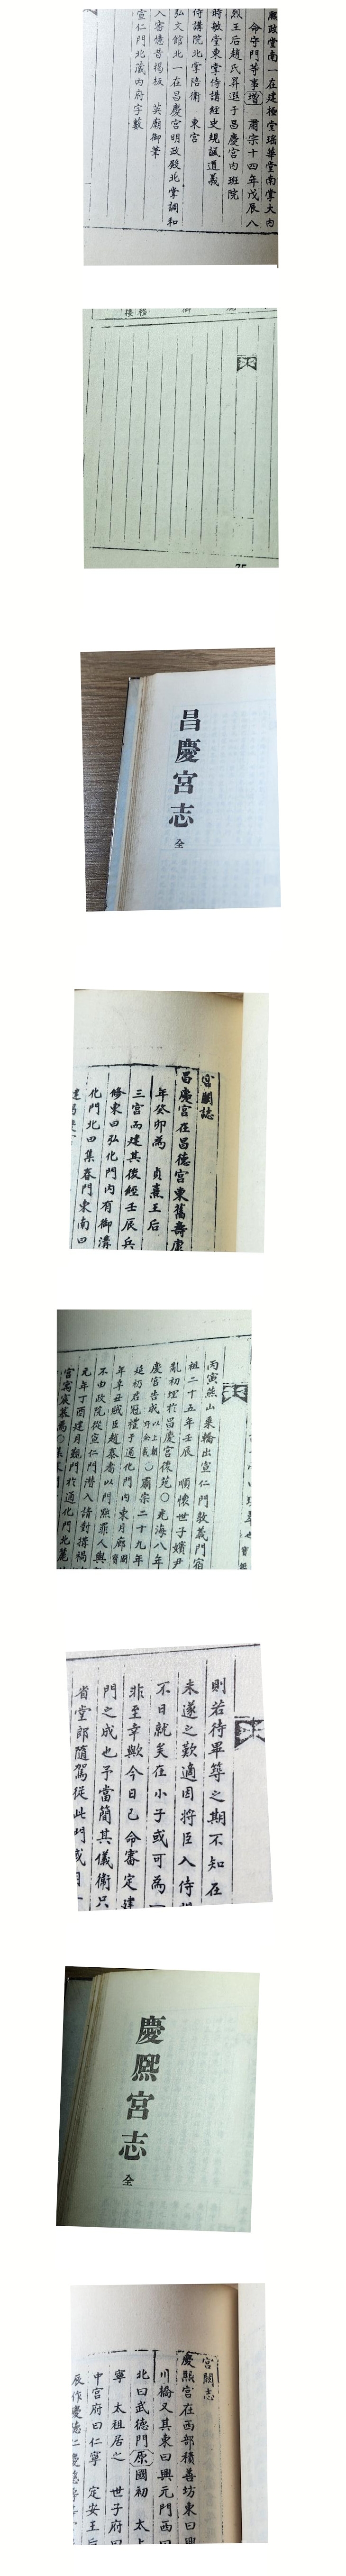 熙政堂南一在建極堂瑤華堂南掌大內
命守門等事增 肅宗十四年戊辰八
烈王后趙氏昇遐于昌慶宮內班院
時敏堂東掌侍講經史規諷道義
侍講院北掌陪衛 東宮
弘文館北一在昌慶宮明政殿北掌調和
入審憶昔揭板 英廟御筆
宣仁門北藏內府字數
昌慶宮志
全
宮闕誌
昌慶宮在昌德宮東舊壽康
年癸卯為 貞熹王后
三宮而建其後經壬辰兵
修東曰弘化門內有御溝
化門北曰集春門東南曰
丙寅燕山乘轎出宣仁門敦義門宿
祖二十五年壬辰 順懷世子嬪尹
亂初埋於昌慶宮後苑○光海八年
慶宮告成以上朝野僉載○肅宗二十九年
延礽君冠禮于通化門內東月廊
年辛丑賊臣趙泰耉以門黜罪人與
不由政院從宣仁門潛入請對搆禍
元年丁酉建月覲門於通化門北麓
則若待畢等之期不知在
未遂之歎適因將臣入侍
不日就矣在小子或可為一
非至幸歟今日已命審定建
門之成也予當簡其儀衛只
省堂郎隨駕從此門或月一
慶熙宮志
全
宮闕志
慶熙宮在西部積善坊東曰興
川橋又其東曰興元門西曰
北曰武德門原國初 太
寧 太祖居之 世子府曰
中宮府曰仁寧 定安王后